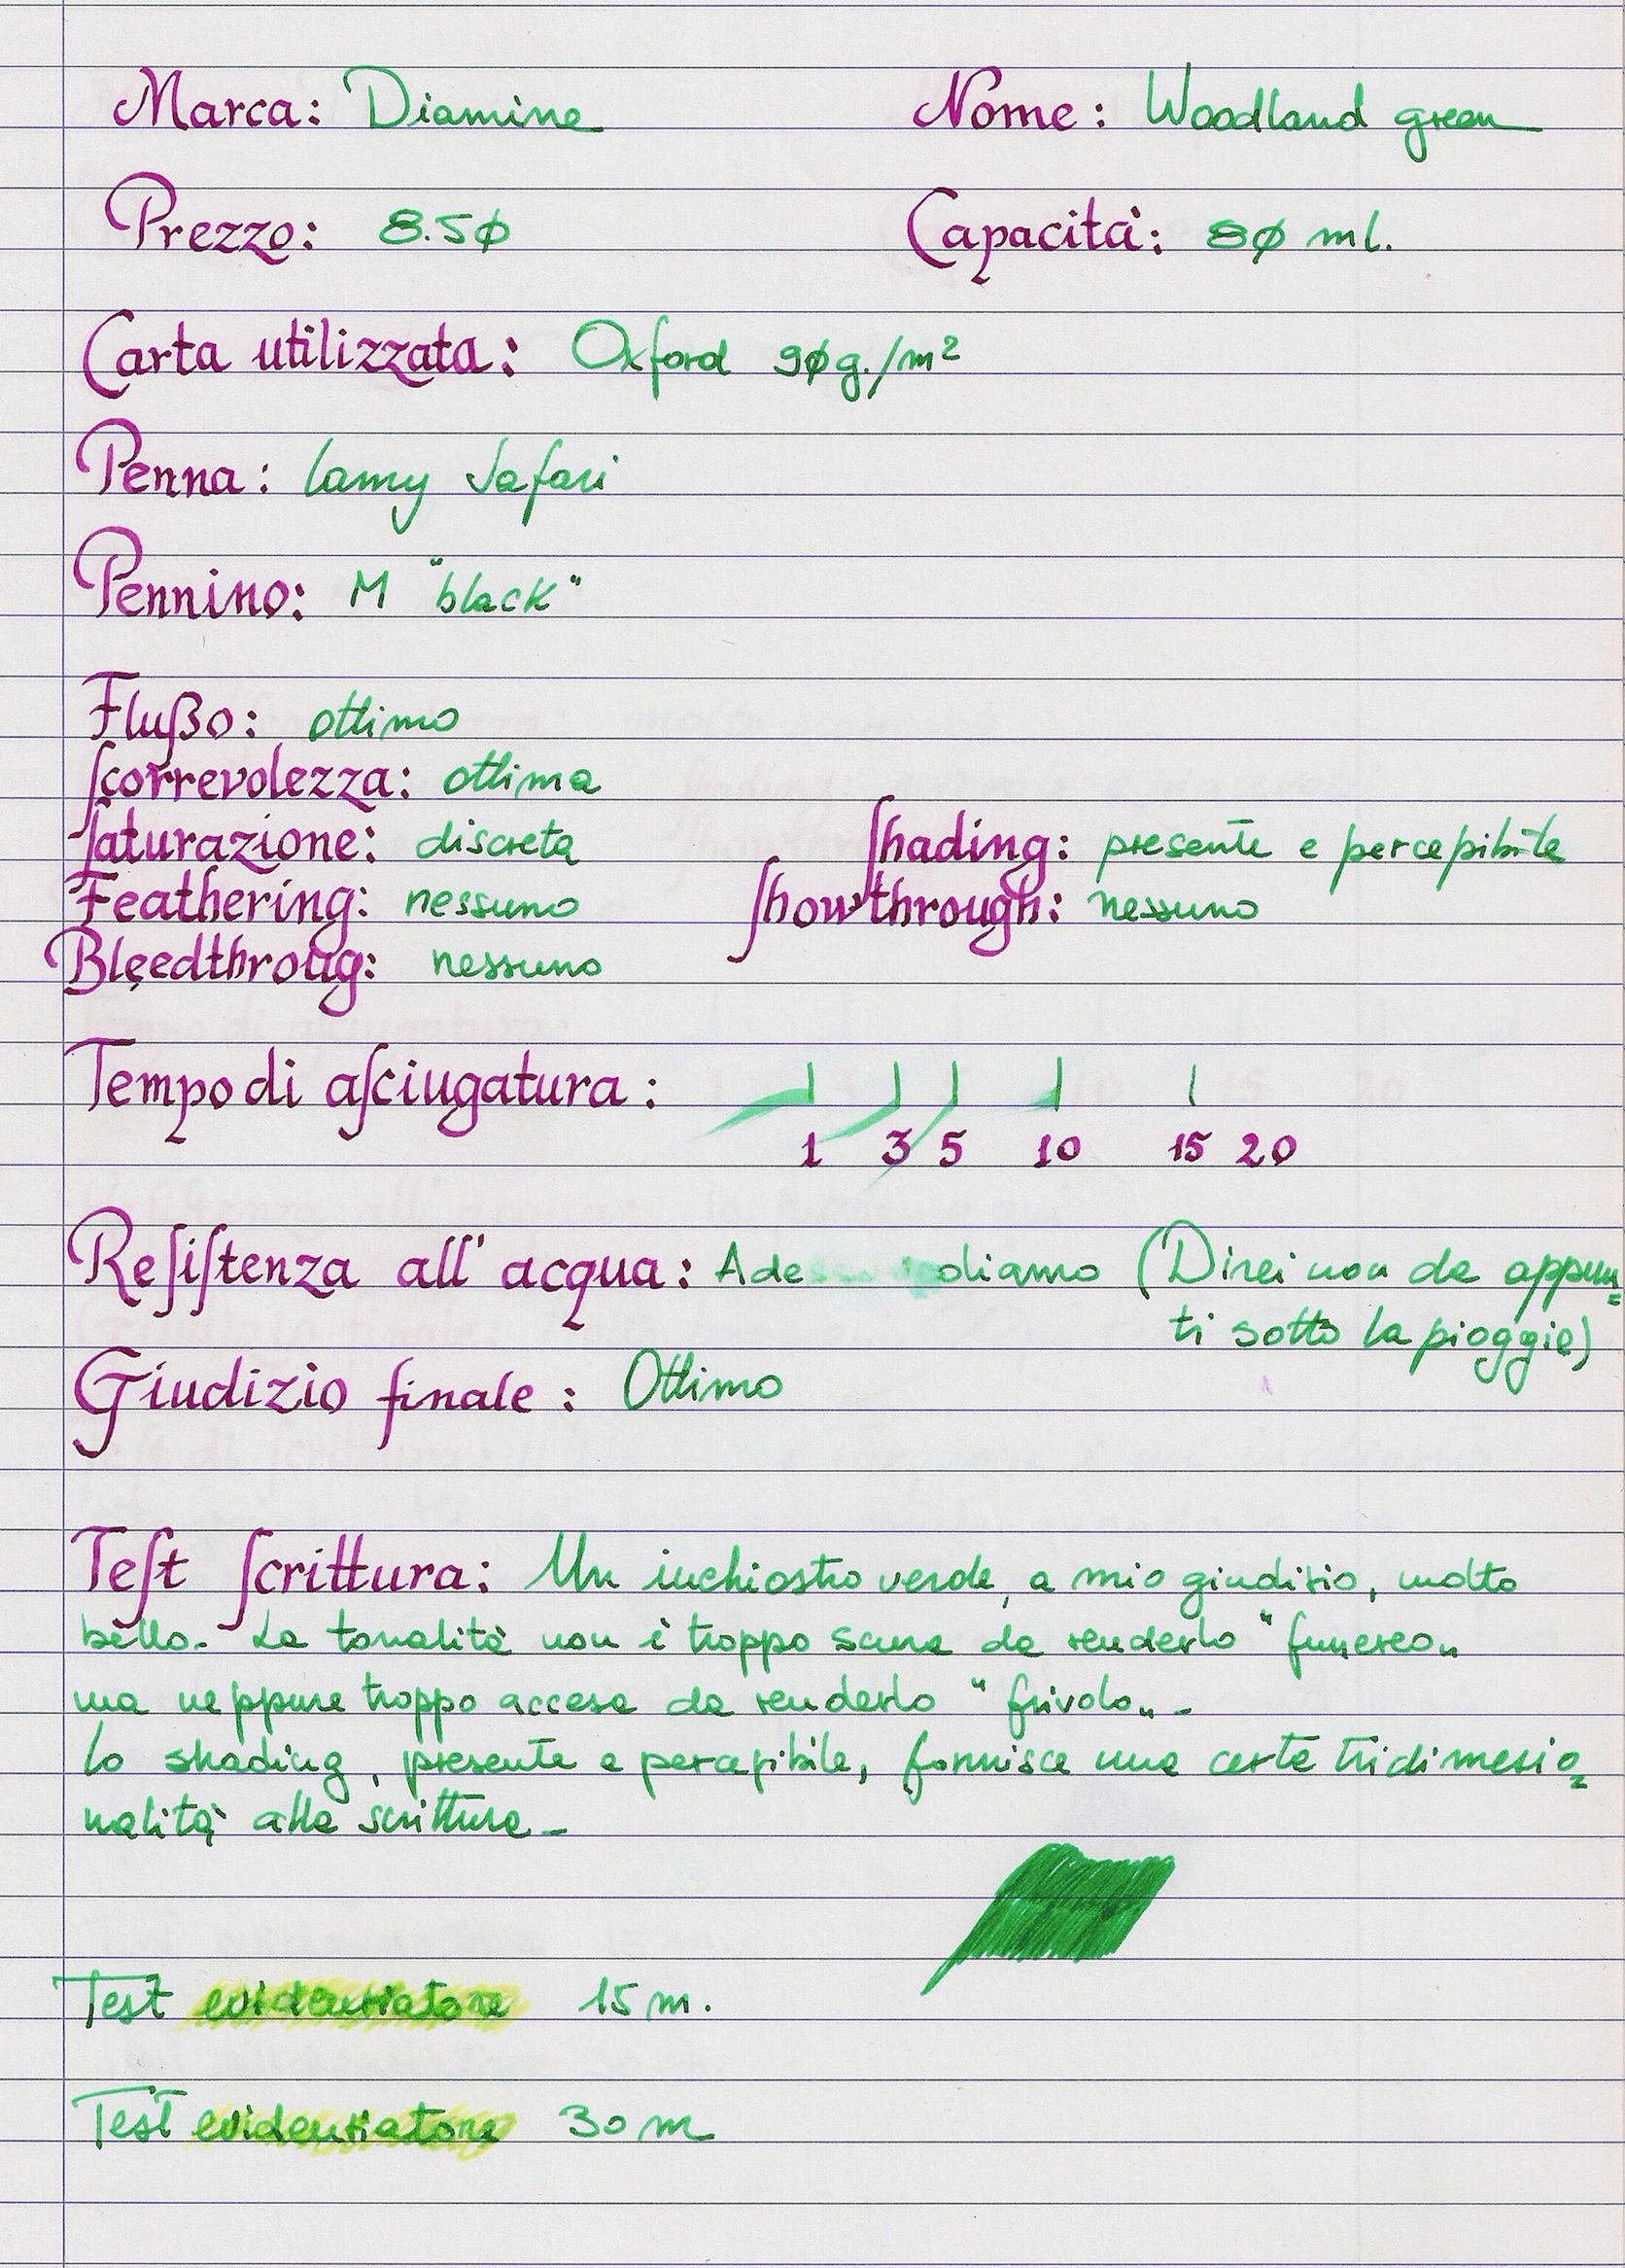 Marca: Diamine Nome: Woodland green
Prezzo: 8.50 Capacità: 80 ml.
Carta utilizzata: Oxford 90g./m²
Penna: Lamy Safari
Pennino: M "black"
Flußo: ottimo
Scorrevolezza: ottima
Saturazione: discreta Shading: presente e percepibile
Feathering: nessuno Showthrough: nessuno
Bleedthroug: nessuno
Tempo di asciugatura:
1 3 5 10 15 20
Resistenza all'acqua: (Direi non da appun=
ti sotto la pioggia)
Giudizio finale: Ottimo
Test Scrittura: Un inchiostro verde, a mio giudizio, molto
bello. La tonalità non è troppo scura da renderlo "funereo"
ma neppure troppo accesa da renderlo "frivolo".
Lo shading, presente e percepibile, fornisce una certa tridimesio=
nalità alla scrittura.
Test evidenziatore 15 m.
Test evidenziatore 30 m